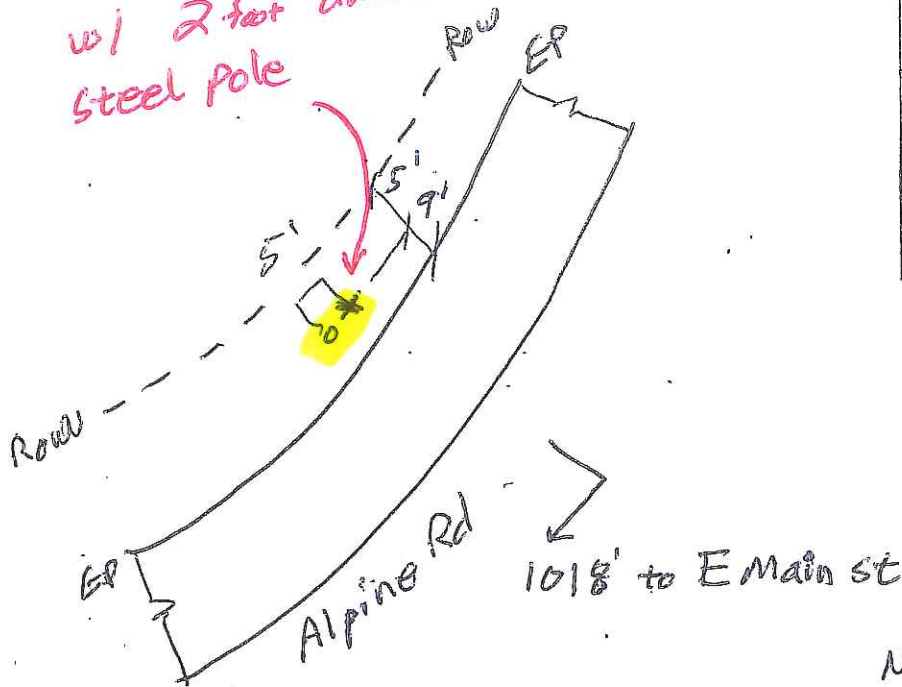 w/ 2 foot
steel pole
ROW
EP
5'
9'
5'
ROW
EP
Alpine Rd
1018' to E Main st